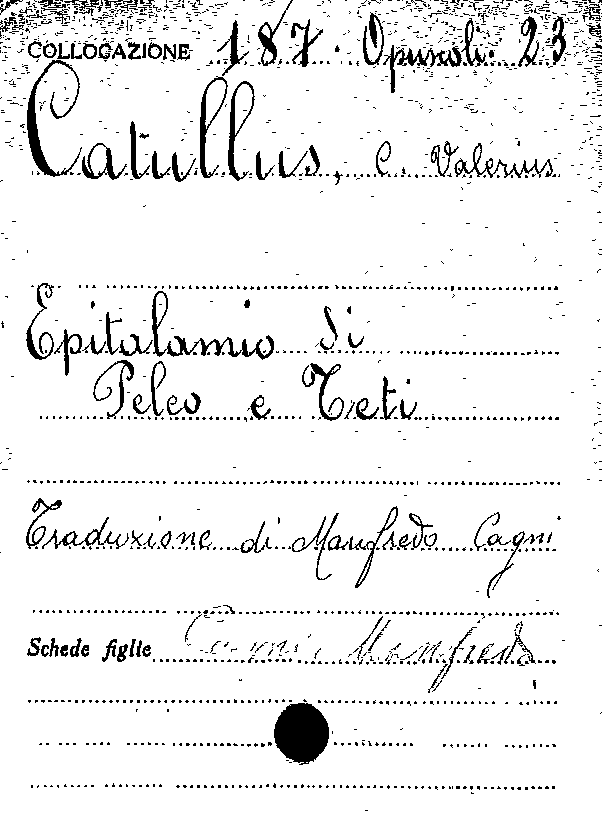 COLLOCAZIONE 187. Opuscoli: 23
Catullus, C. Valerius
Epitalamio di
Peleo e Teti
Traduzione di Manfredo Cagni
Schede figlie Cagni Manfredo